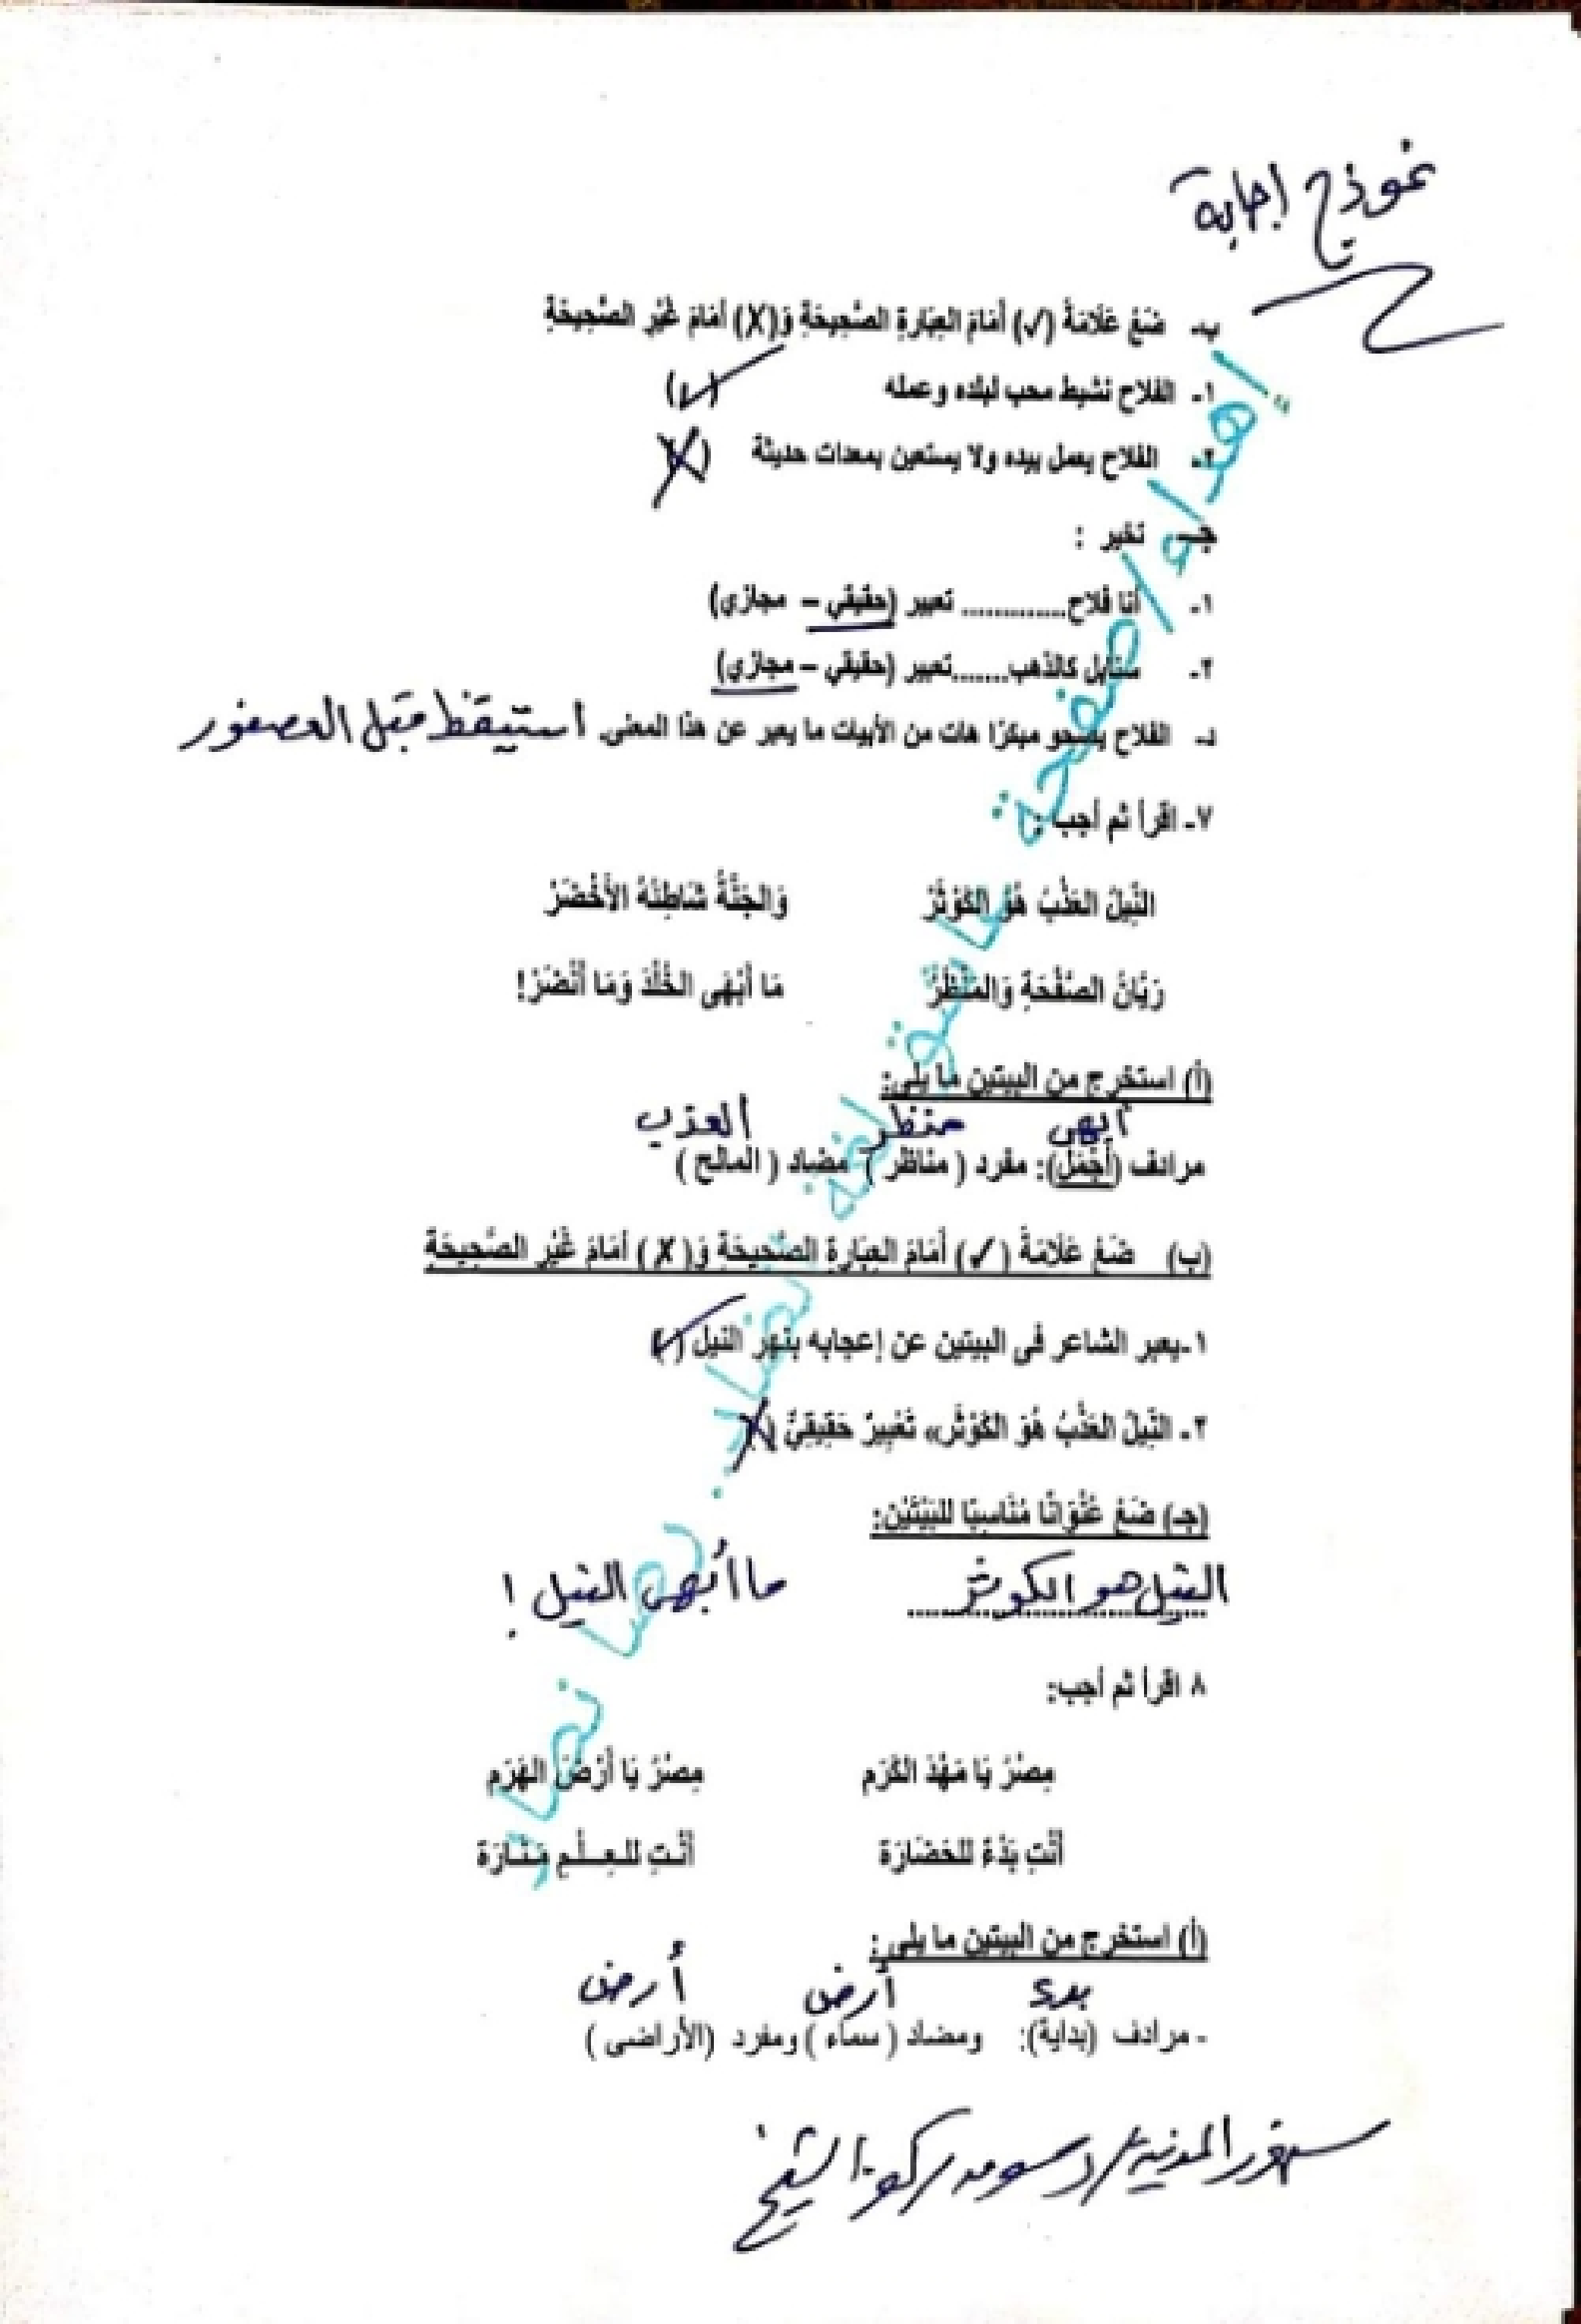 نموذج إجابة
ب- ضَعْ عَلَامَةَ (√) أَمَامَ العِبَارةِ الصَّحِيحَةِ وَ(X) أمَامَ غَيْرِ الصَّحِيحَةِ
١- الفلاح نشيط محب لبلده وعمله (√)
٢- الفلاح يعمل بيده ولا يستعين بمعدات حديثة (X)
جـ- تخير :
١- أنا فلاح............. تعبير (حقيقي – مجازي)
٢- سنابل كالذهب.......تعبير (حقيقي – مجازي)
د- الفلاح يصحو مبكرًا هات من الأبيات ما يعبر عن هذا المعنى. أستيقظ قبل العصفور
٧- اقرأ ثم أجب:
النِّيلُ العَذْبُ هُوَ الكَوْثَرْ وَالجَنَّةُ شَاطِئُهُ الأَخْضَرْ
رَيَّانُ الصَّفْحَةِ وَالمَنْظَرْ مَا أَبْهَى الخُلْدَ وَمَا أَنْضَرْ!
(أ) استخرج من البيتين ما يلى:
أبهى منظر العذب
مرادف (أجْمَلَ): مفرد ( مناظر ) مضاد ( المالح )
(ب) ضَعْ عَلَامَةَ (✓) أَمَامَ العِبَارةِ الصَّحِيحَةِ وَ( X ) أمَامَ غَيْرِ الصَّحِيحَةِ
١-يعبر الشاعر فى البيتين عن إعجابه بنهر النيل (√)
٢- النِّيلُ العَذْبُ هُوَ الكَوْثَر» تَعْبِيرٌ حَقِيقِيٌّ (X)
(جـ) ضَعْ عُنْوَانًا مُنَاسِبًا للبَيْتَيْنِ:
النيل هو الكوثر ما أبهى النيل !
٨ اقرأ ثم أجب:
مِصْرُ يَا مَهْدَ الكَرَم مِصْرُ يَا أَرْضَ الهَرَم
أَنْتِ بَدْءٌ للحَضَارَة أَنْتِ للعِلْمِ مَنَارَة
(أ) استخرج من البيتين ما يلى :
بدء أرض أرض
- مرادف (بداية): ومضاد ( سماء ) ومفرد (الأراضى )